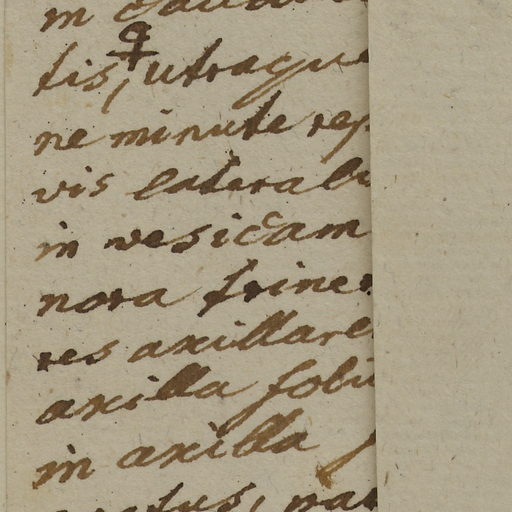 in
tis, utraque
ne minute rep
vis laterali
in vesicam
nora triner
res axillare
axilla foli
in axilla